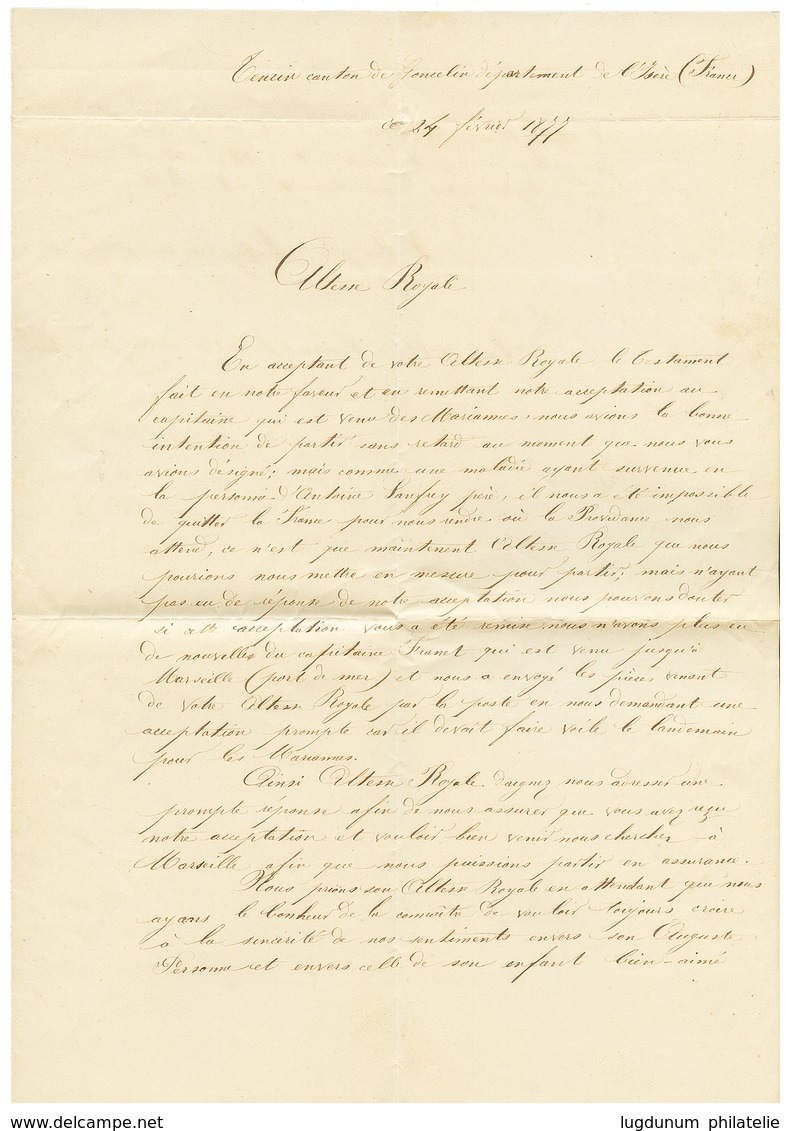 Tencin canton de Goncelin département de l'Isère (France)
ce 24 février 1877
Altesse Royale
En acceptant de votre Altesse Royale le testament
fait en notre faveur et en remettant notre acceptation au
capitaine qui est venu des Mariannes, nous avions la bonne
intention de partir sans retard au moment que nous vous
avions désigné; mais comme une maladie ayant survenue en
la personne d'Antoine Lanfrey père, il nous a été impossible
de quitter la France pour nous rendre où la Providance nous
attend, ce n'est que maintenent Altesse Royale que nous
pourions nous mettre en mesure pour partir; mais n'ayant
pas eu de réponse de notre acceptation nous pouvons douter
si cette acceptation vous a été remise. nous n'avons plus eu
de nouvelles du capitaine Franet qui est venu jusqu'à
Marseille (port de mer) et nous a envoyé les pièces venant
de Votre Altesse Royale par la poste en nous demandant une
acceptation prompte car il devait faire voile le landemain
pour les Mariannes.
Ainsi Altesse Royale daignez nous adresser une
prompte réponse afin de nous assurer que vous avez reçu
notre acceptation et vouloir bien venir nous chercher à
Marseille afin que nous puissions partir en assurance.
Nous prions son Altesse Royale en attendant que nous
ayans le bonheur de la connaître de vouloir toujours croire
à la sincérité de nos sentiments envers son Auguste
Personne et envers celle de son enfant bien-aimé
lugdunum philatelie